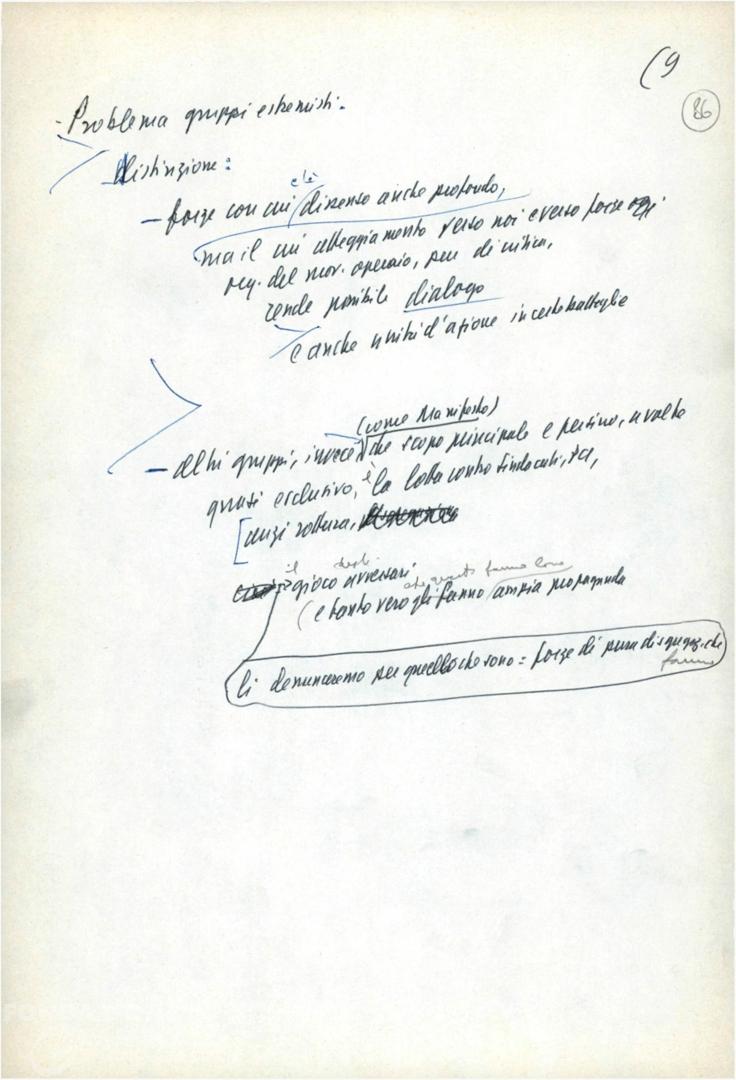 (9
86
- Problema gruppi estremisti.
distinzione:
c'è
- forze con cui dissenso anche profondo,
ma il cui atteggiamento verso noi e verso forze
org. del mov. operaio, pur di critica,
rende possibile dialogo
e anche unità d'azione in certe battaglie
(come Manifesto)
- altri gruppi, invece, che scopo principale e persino, a volte
quasi esclusivo, è la lotta contro sindacati,
[anzi rottura,
il degli
gioco avversari
che questi fanno loro
(e tanto vero gli fanno ampia propaganda
li denunceremo per quello che sono = forze di pura disgregaz. che
fanno